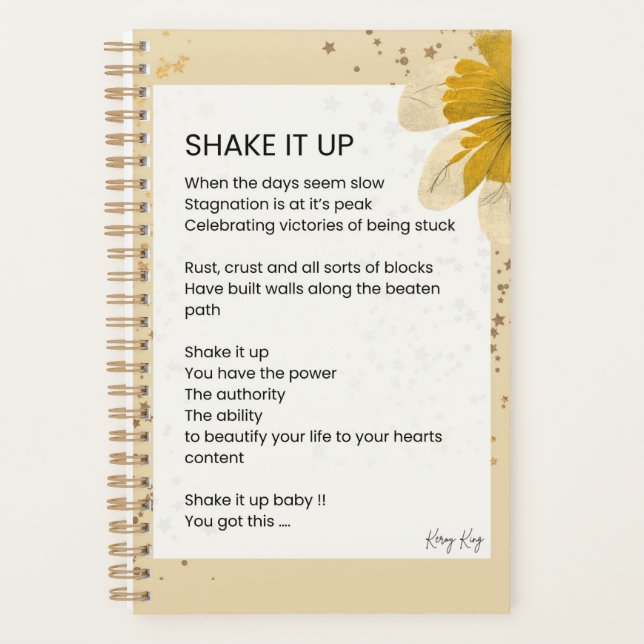 SHAKE IT UP
When the days seem slow
Stagnation is at it’s peak
Celebrating victories of being stuck
Rust, crust and all sorts of blocks
Have built walls along the beaten
path
Shake it up
You have the power
The authority
The ability
to beautify your life to your hearts
content
Shake it up baby !!
You got this ....
Keroy King